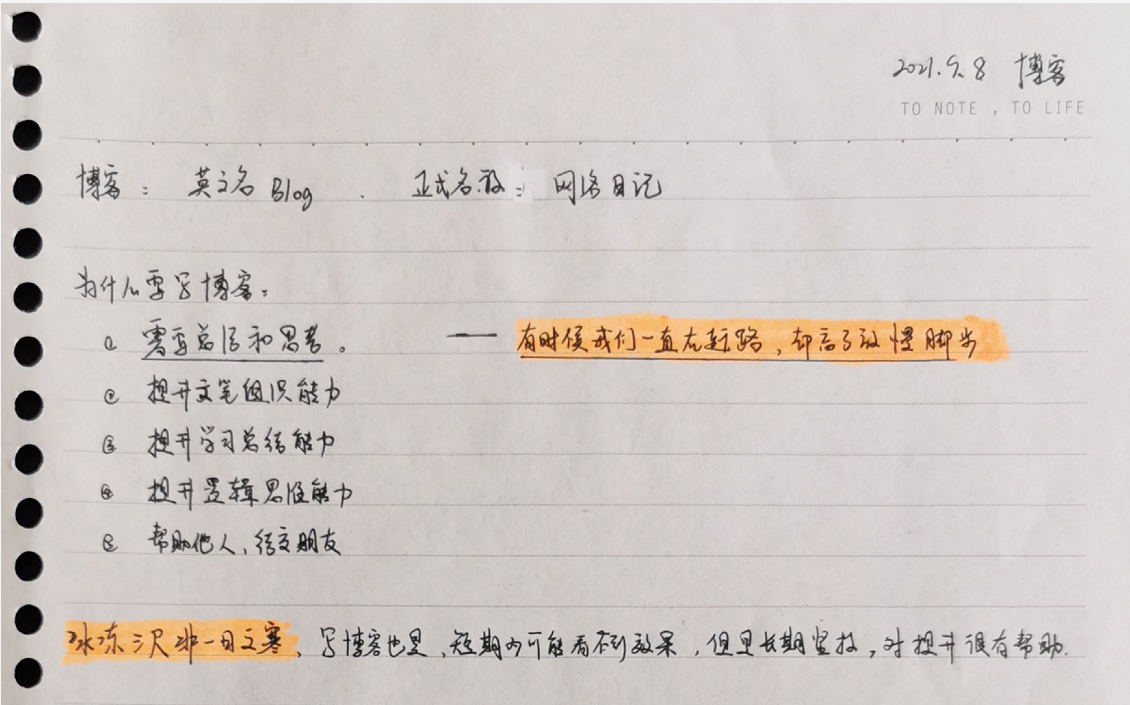 2021.9.8 博客
TO NOTE , TO LIFE
博客: 英文名 Blog . 正式名称: 网络日记
为什么要写博客:
① 需要总结和思考。 —— 有时候我们一直在赶路,却忘了放慢脚步
② 提升文笔组织能力
③ 提升学习总结能力
④ 提升逻辑思维能力
⑤ 帮助他人,结交朋友
冰冻三尺非一日之寒,写博客也是,短期内可能看不到效果,但是长期坚持,对提升很有帮助.